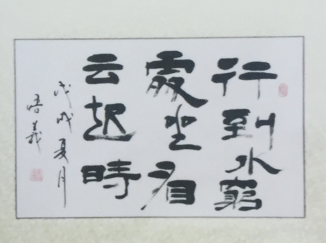 行到水窮
處坐看
云起時
戊戌夏月
悟義